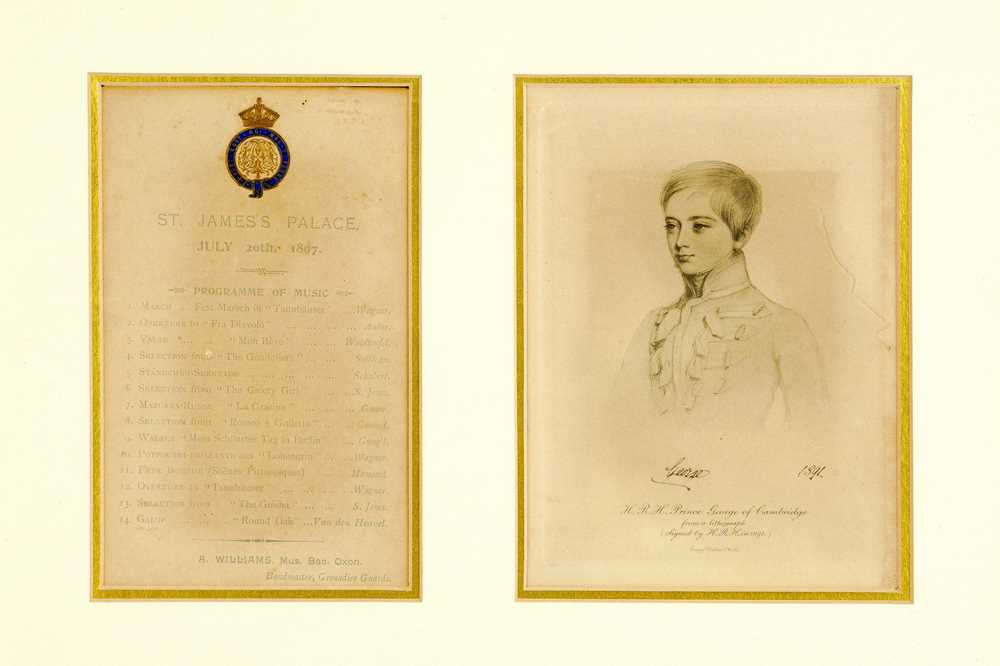 ST. JAMES'S PALACE,
JULY 20th, 1897.
PROGRAMME OF MUSIC
1. MARCH .. Fest-Marsch in "Tannhäuser" ... Wagner.
2. OVERTURE to "Fra Diavolo" ... ... ... Auber.
3. VALSE "... .. "Mon Rêve" ... ... Waldteufel.
4. SELECTION from "The Gondoliers" ... ... Sullivan.
5. STÄNDCHEN-SERENADE ... ... ... ... Schubert.
6. SELECTION from "The Gaiety Girl" ... ...S. Jones.
7. MAZURKA-RUSSE "La Czarine" ... ... Ganne.
8. SELECTION from "Romeo e Giulietta" .. .. Gounod.
9. WALZER "Mein Schönster Tag in Berlin" ... Gung'l.
10. from "Lohengrin" ... ...Wagner.
11. FÊTE BOHÈME (Scènes Pittoresques) Massenet.
12. OVERTURE to "Tannhäuser" ... ... ... ..Wagner.
13. SELECTION from "The Geisha" ... ... S. Jones.
14. GALOP ... ... "Round Oak" ...Van den Heuvel.
A. WILLIAMS, Mus. Bac. Oxon.
Bandmaster, Grenadier Guards.
George 1891.
H. R. H. Prince George of Cambridge
from a lithograph
(Signed by H.R.H. in 1891.)